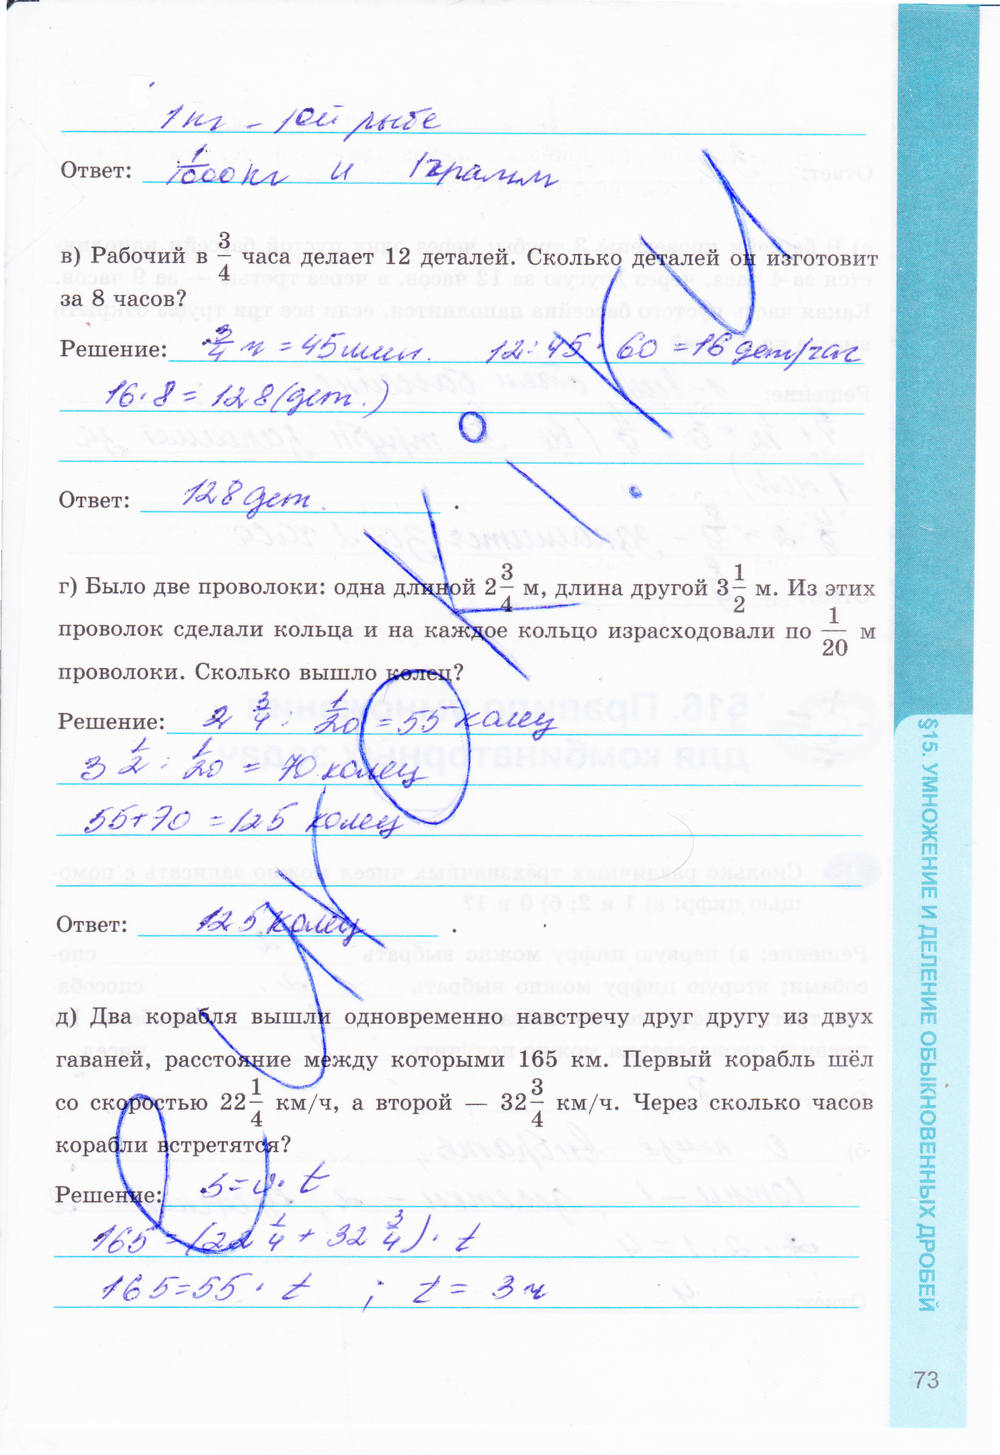 1 кг - 10й рыбе
Ответ: 1/1000 кг и 1 грамм
в) Рабочий в 3/4 часа делает 12 деталей. Сколько деталей он изготовит
за 8 часов?
Решение: 3/4 ч = 45 мин. 12 : 45 · 60 = 16 дет/час
16 · 8 = 128 (дет.)
Ответ: 128 дет.
г) Было две проволоки: одна длиной 2 3/4 м, длина другой 3 1/2 м. Из этих
проволок сделали кольца и на каждое кольцо израсходовали по 1/20 м
проволоки. Сколько вышло колец?
Решение: 2 3/4 : 1/20 = 55 колец
3 1/2 : 1/20 = 70 колец
55 + 70 = 125 колец
Ответ: 125 колец.
д) Два корабля вышли одновременно навстречу друг другу из двух
гаваней, расстояние между которыми 165 км. Первый корабль шёл
со скоростью 22 1/4 км/ч, а второй — 32 3/4 км/ч. Через сколько часов
корабли встретятся?
Решение: S = v · t
165 = (22 1/4 + 32 3/4) · t
165 = 55 · t ; t = 3 ч
§15. УМНОЖЕНИЕ И ДЕЛЕНИЕ ОБЫКНОВЕННЫХ ДРОБЕЙ
73